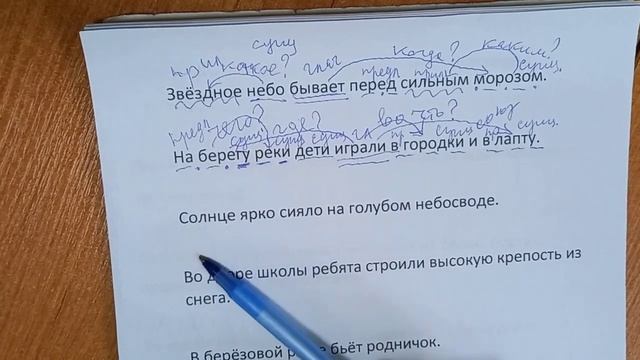 сущ
прил какое? глаг когда? каким?
предл прил сущ.
Звёздное небо бывает перед сильным морозом.
чего? где? во что? союз
предл сущ сущ сущ гл пр сущ пр сущ.
На берегу реки дети играли в городки и в лапту.
Солнце ярко сияло на голубом небосводе.
Во дворе школы ребята строили высокую крепость из
снега.
В берёзовой бьёт родничок.